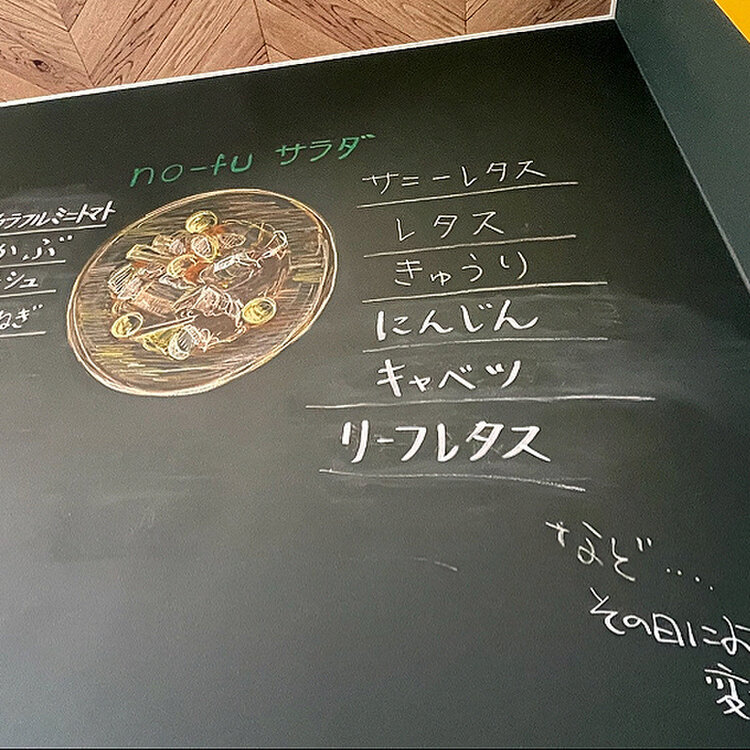 no-fu サラダ
カラフルミニトマト
かぶ
シュ
ねぎ
サニーレタス
レタス
きゅうり
にんじん
キャベツ
リーフレタス
など‥‥
その日によ
変